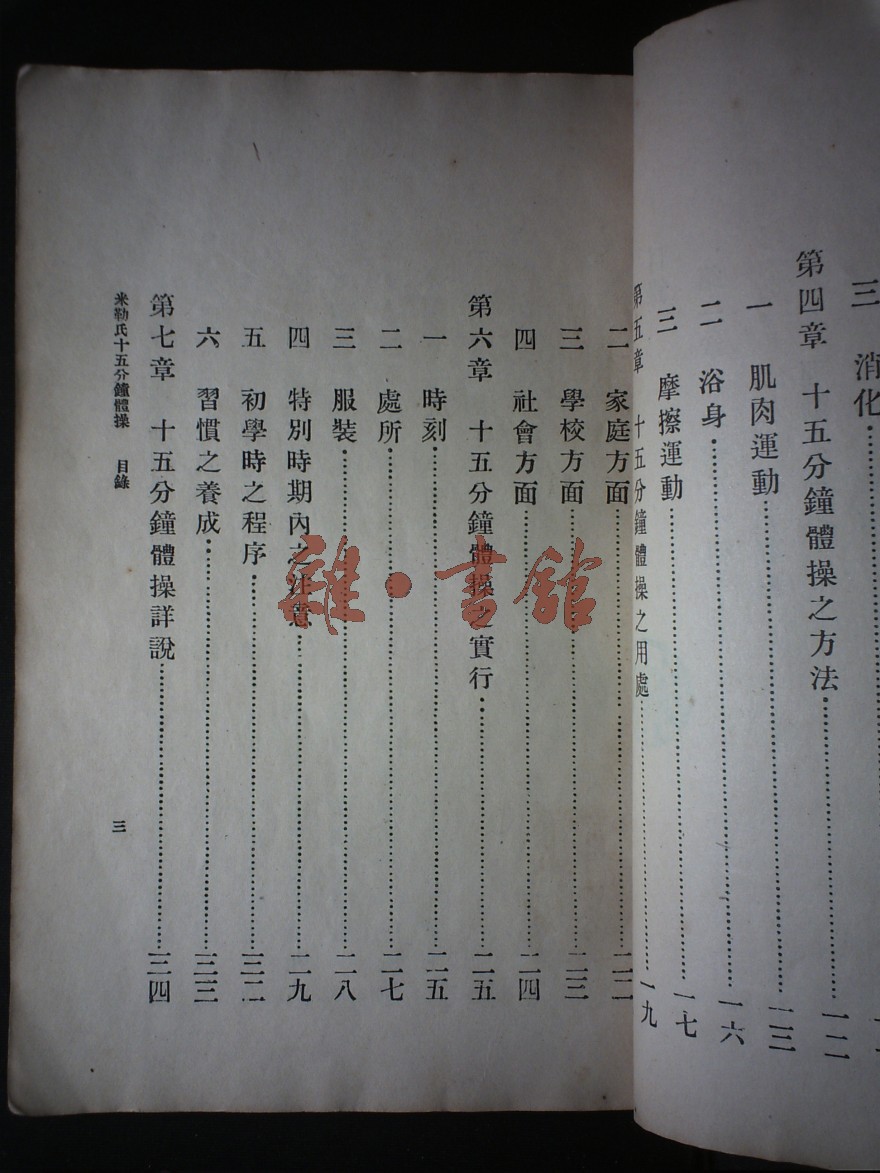 三 消化
第四章 十五分鐘體操之方法……一二
一 肌肉運動……一三
二 浴身……一六
三 摩擦運動……一七
第五章 十五分鐘體操之用處……一九
二 家庭方面……二二
三 學校方面……二三
四 社會方面……二四
第六章 十五分鐘體操之實行……二五
一 時刻……二五
二 處所……二七
三 服裝……二八
四 特別時期內之注意……二九
五 初學時之程序……三二
六 習慣之養成……三三
第七章 十五分鐘體操詳說……三四
米勒氏十五分鐘體操 目錄
三
雜·書館